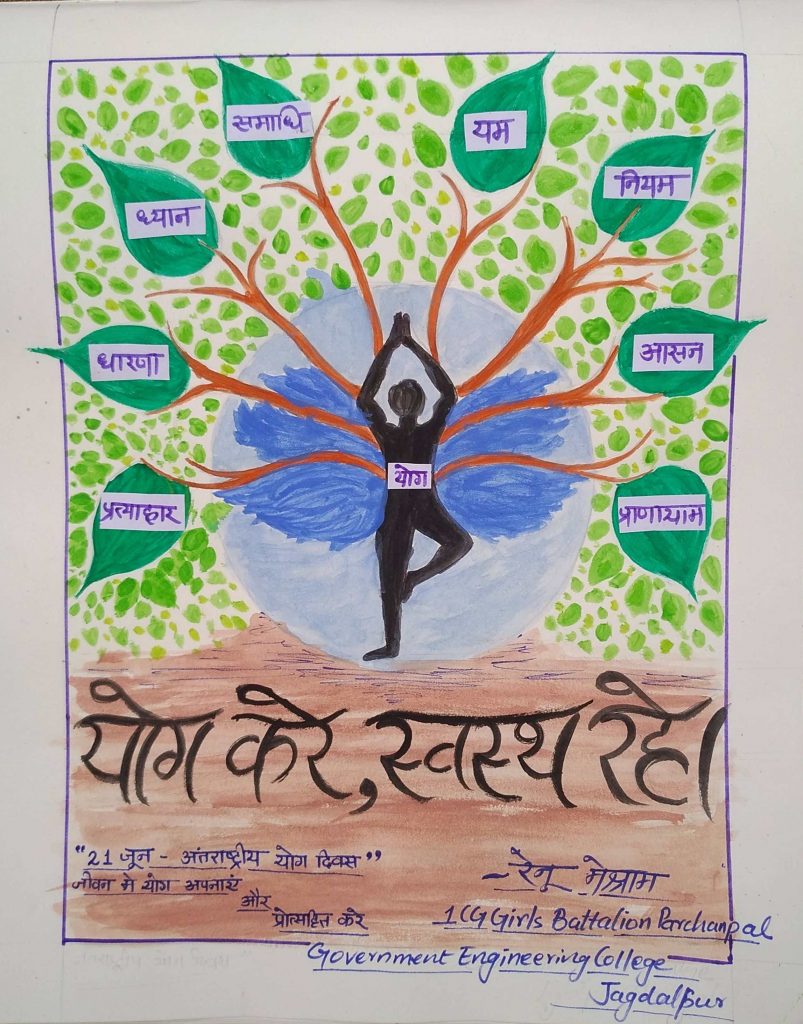 समाधि
यम
ध्यान
नियम
धारणा
आसन
प्रत्याहार
योग
प्राणायाम
योग करे, स्वस्थ रहे।
"21 जून - अंतराष्ट्रीय योग दिवस"
जीवन मे योग अपनाएं
और
प्रोत्साहित करे
- रेनू मेश्राम
1 CG Girls Battalion Parchanpal
Government Engineering College
Jagdalpur